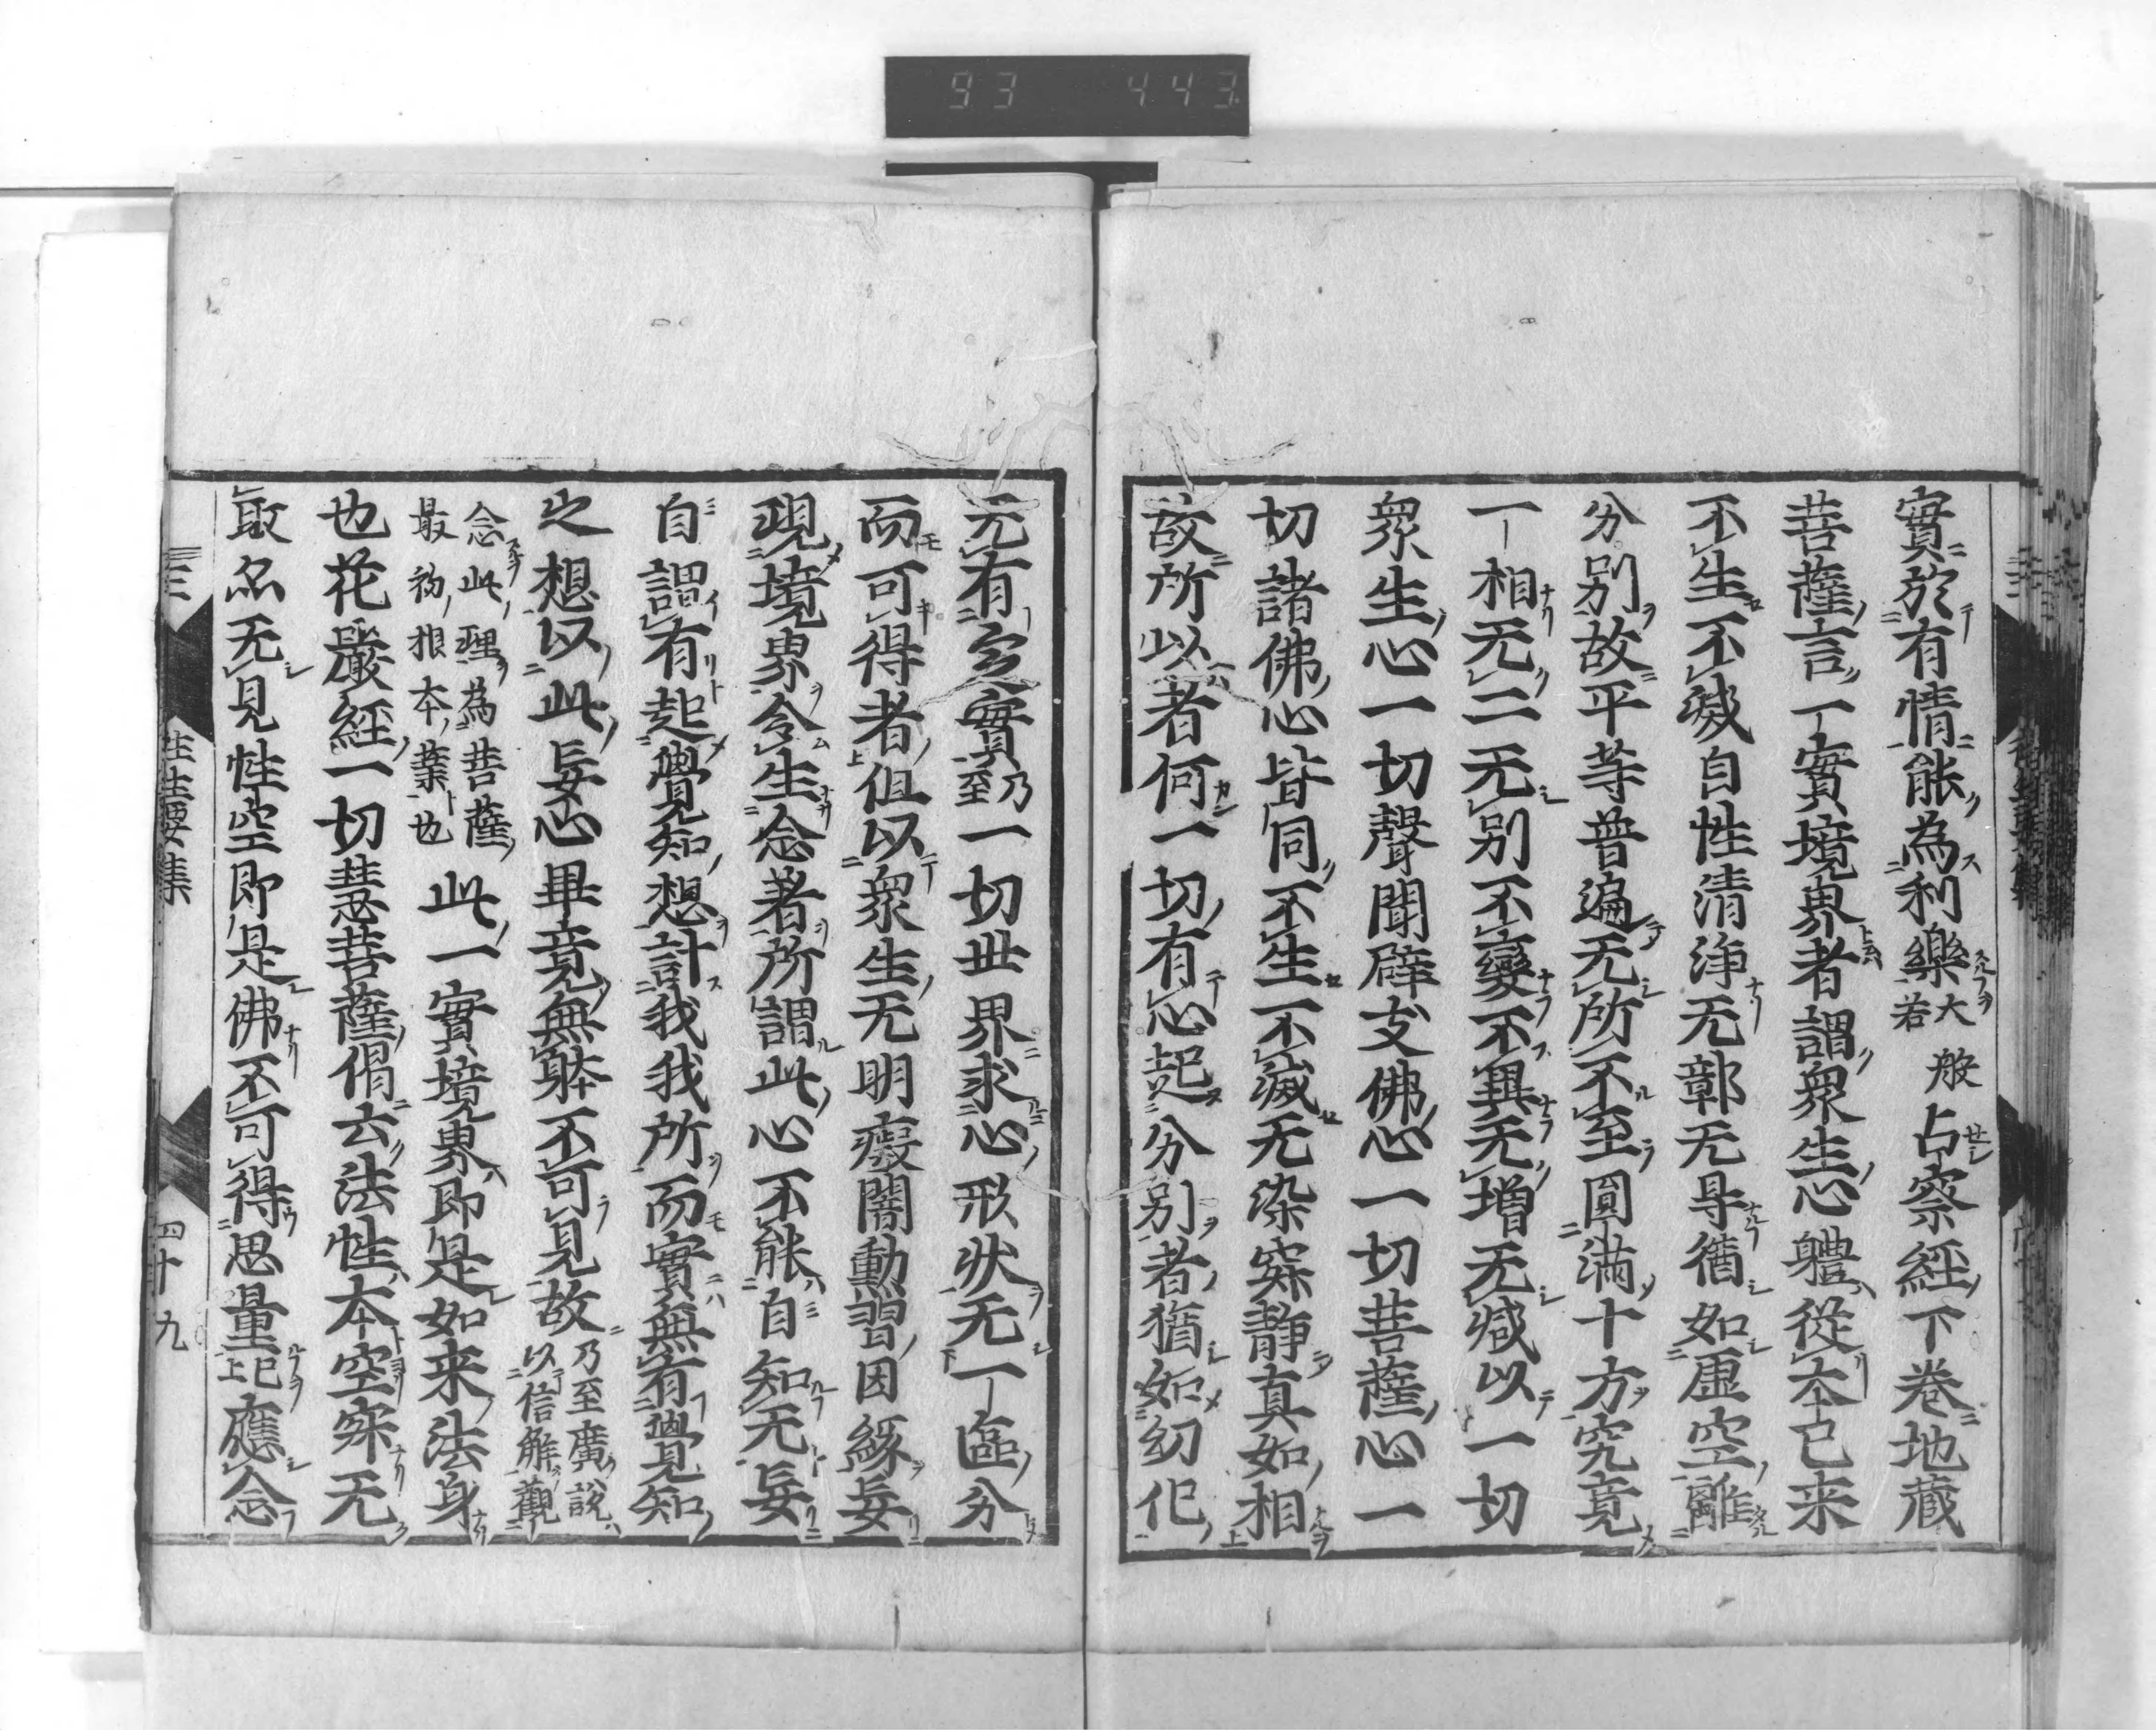 93 443
實於有情能為利樂大般若占察經下卷地藏
菩薩言一實境界者謂衆生心體從本已来
不生不滅自性清淨无鄣无㝵猶如虛空離
分別故平等普遍无所不至圓滿十方究竟
一相无二无別不變不異无增无减以一切
衆生心一切聲聞辟支佛心一切菩薩心一
切諸佛心皆同不生不滅无染㝛靜真如相
故所以者何一切有心起分別者猶如幻化
无有定實乃至一切世界求心形狀无一區分
而可得者但以衆生无明癡闇勳習因緣妄
現境界令生念著所謂此心不能自知无妄
自謂有起覺知想計我我所而實無有覺知
之想以此妄心畢竟無躰不可見故乃至廣說以信解觀
念此理為菩薩最初根本業也此一實境界即是如来法身
也花嚴經一切慧菩薩偈云法性本空寂无
取亦无見性空即是佛不可得思量已上應念
三 往生要集 四十九